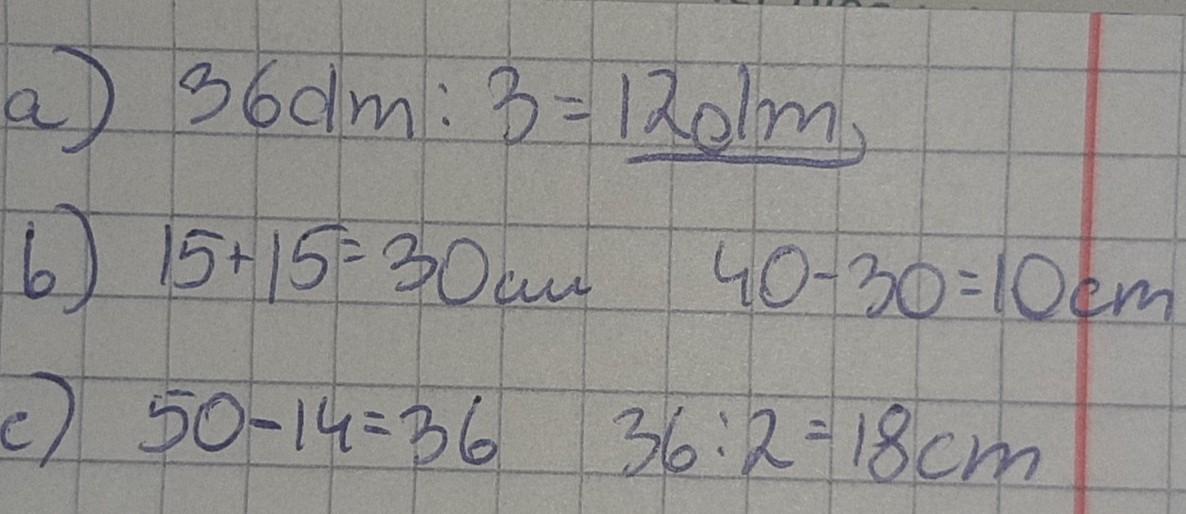 a) 36dm : 3 = 12dm
b) 15+15=30cm 40-30=10cm
c) 50-14=36 36:2=18cm